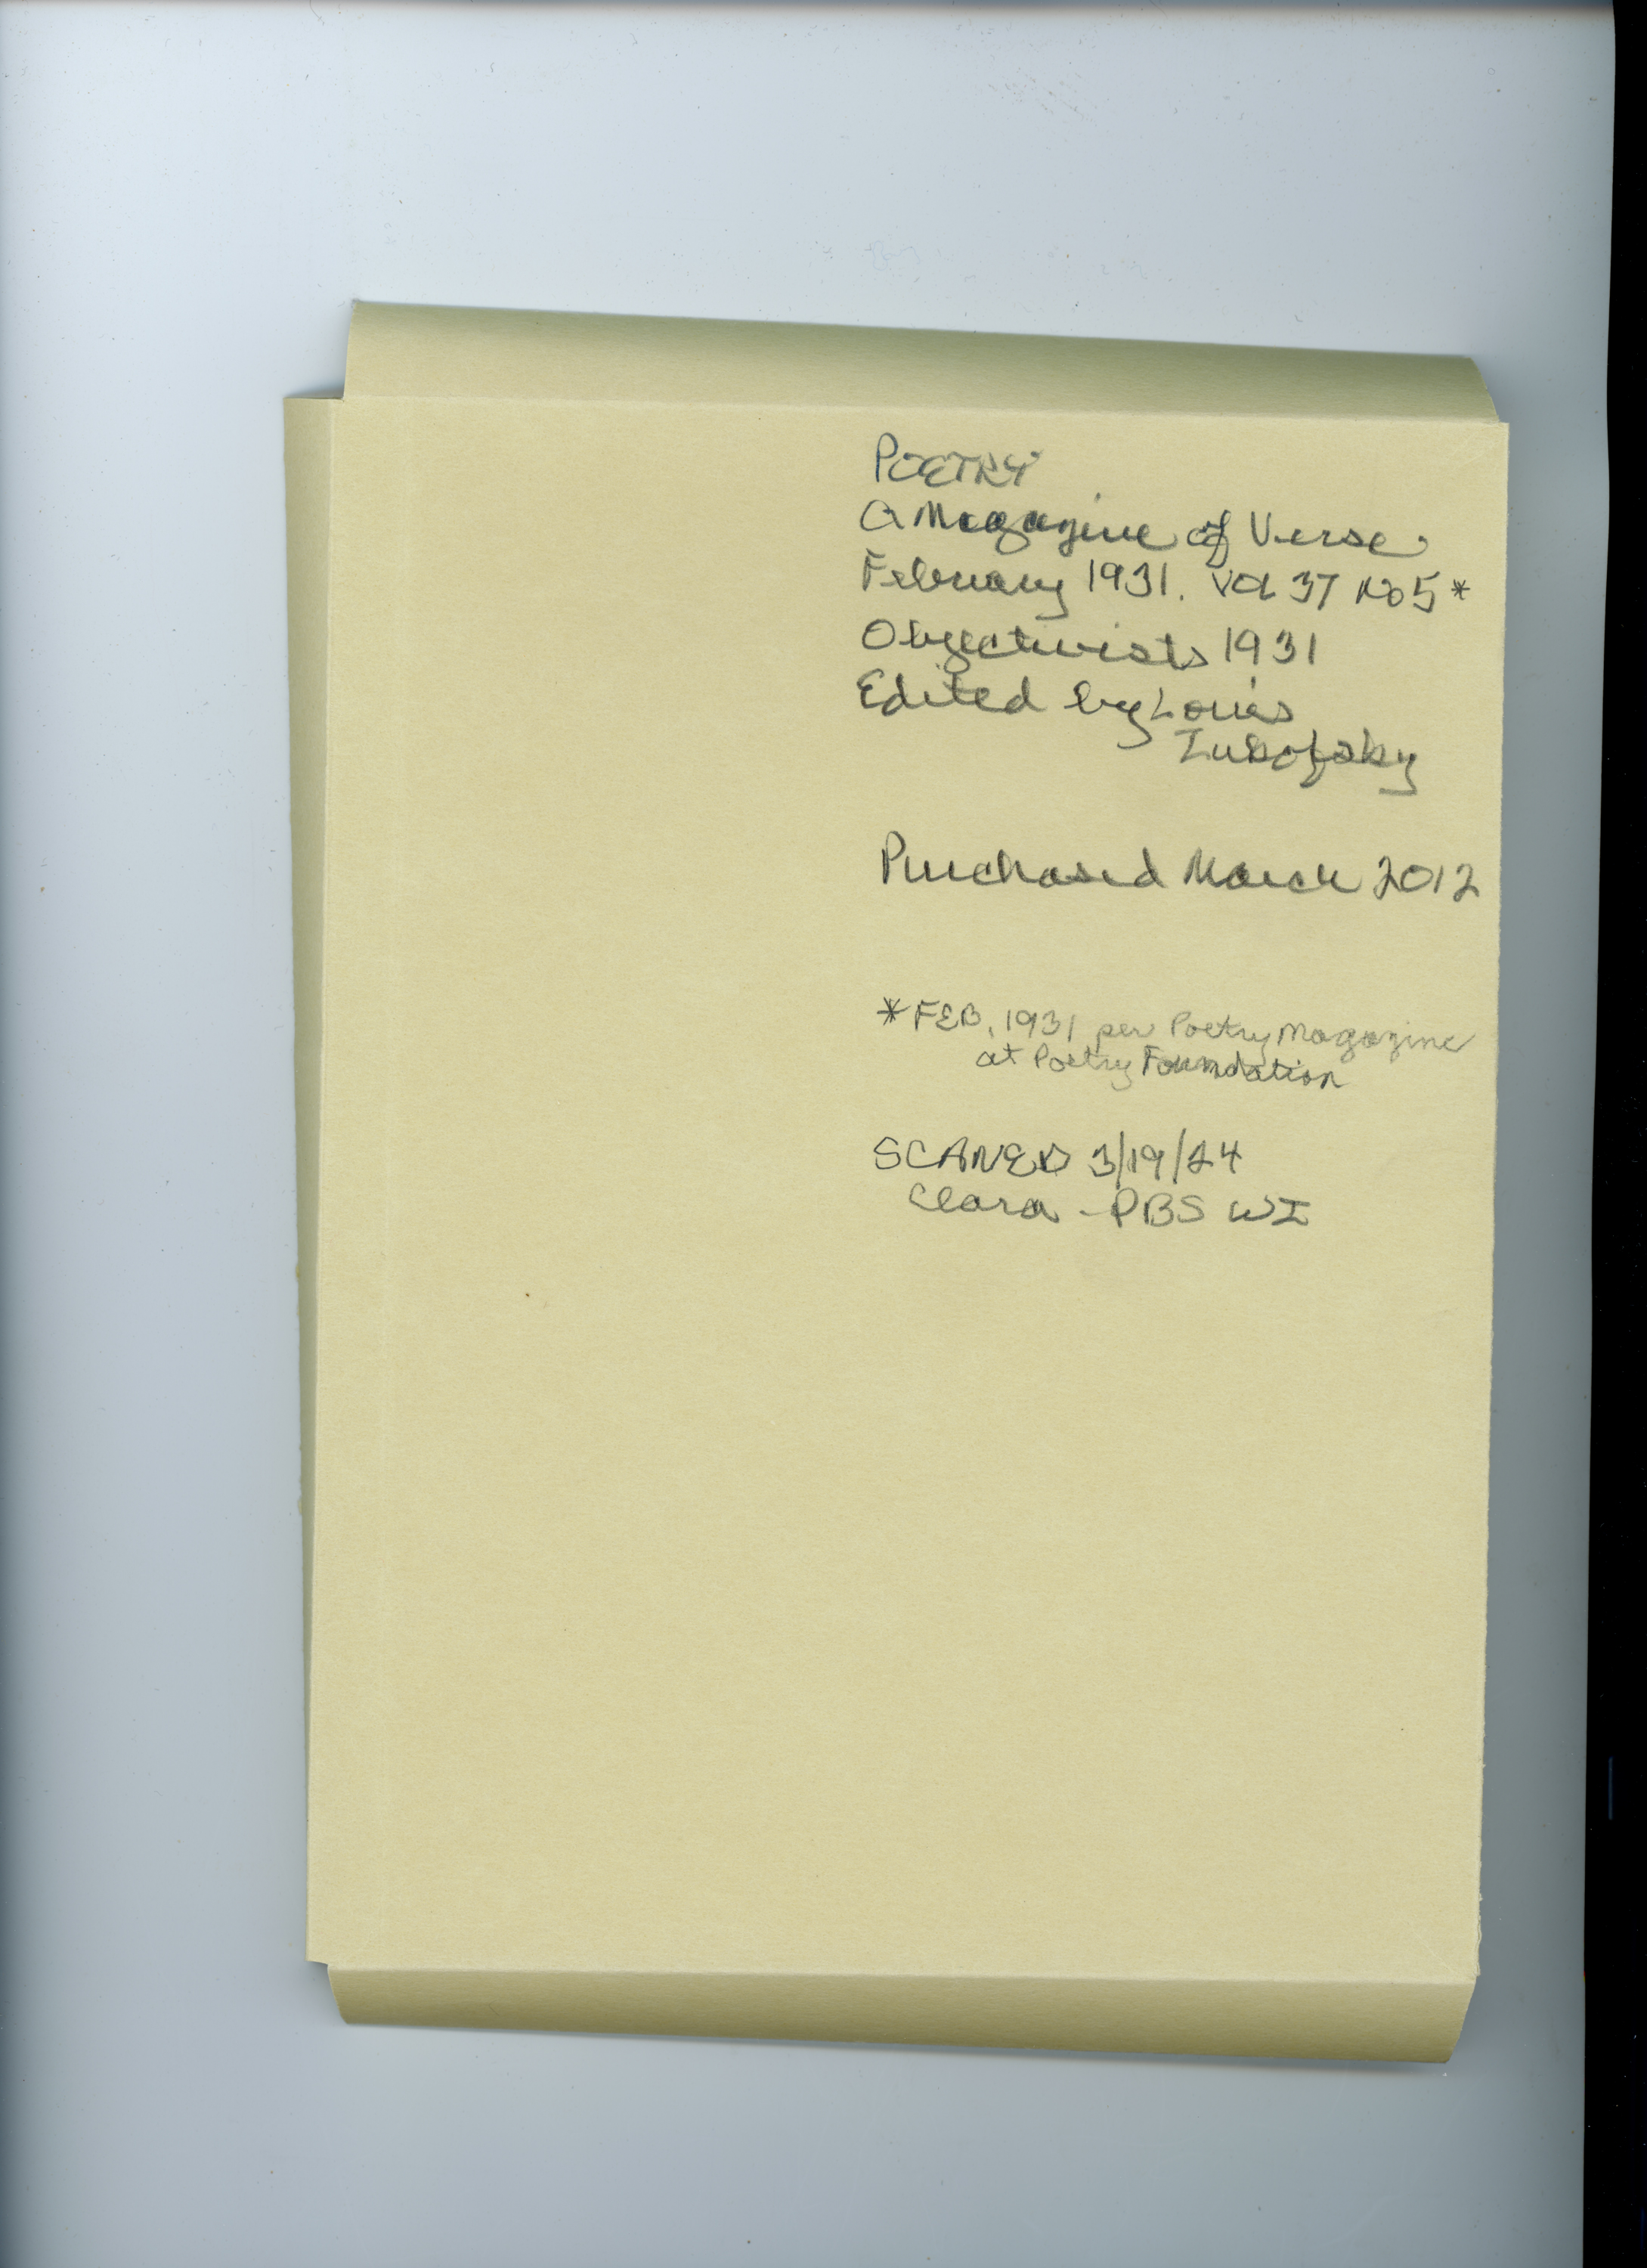 POETRY
A Magazine of Verse
February 1931. Vol 37 No 5*
Objectivists 1931
Edited by Louis
Zukofsky
Purchased March 2012
*FEB. 1931 per Poetry Magazine
at Poetry Foundation
SCANED 3/19/24
Clara - PBS WI